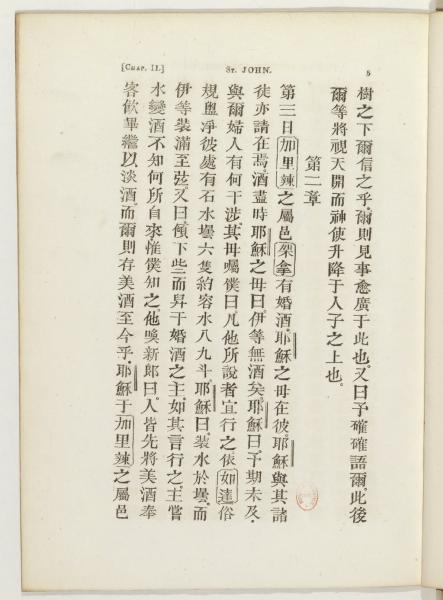 [CHAP. II.] ST. JOHN. 5
樹之下爾信之乎爾則見事愈廣于此也又曰予確確語爾此後
爾等將視天開而神使升降于人子之上也
第二章
第三日加里辣之屬邑架拿有婚酒耶穌之母在彼耶穌與其諸
徒亦請在焉酒盡時耶穌之母曰伊等無酒矣耶穌曰予期未及
與爾婦人有何干涉其母囑僕曰凡他所說者宜行之依如達俗
規盥淨彼處有石水罍六隻約容水八九斗耶穌曰裝水於罍而
伊等裝滿至弦又曰傾下些而舁于婚酒之主如其言行之主嘗
水變酒不知何所自來惟僕知之他喚新郎曰人皆先將美酒奉
客飲畢繼以淡酒而爾則存美酒至今乎耶穌于加里辣之屬邑